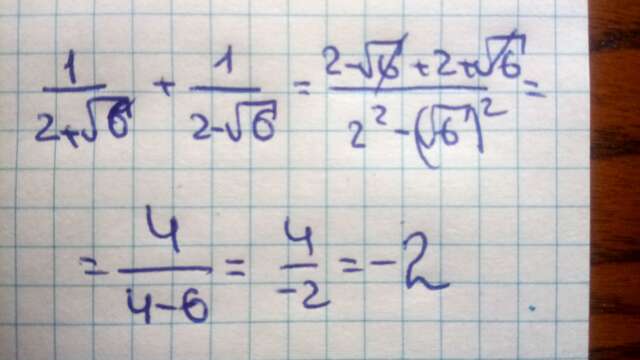 1/(2+√6) + 1/(2-√6) = (2-√6+2+√6)/(2²-(√6)²) =
= 4/(4-6) = 4/-2 = -2